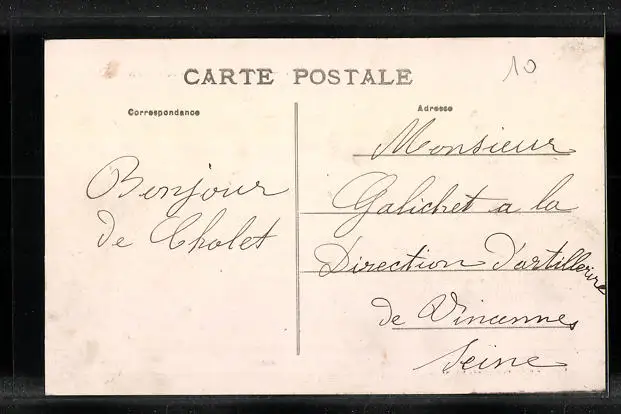 10
CARTE POSTALE
Correspondance
Adresse
Bonjour
de Cholet
Monsieur
Galichet a la
Direction d'artillerie
de Vincennes
Seine